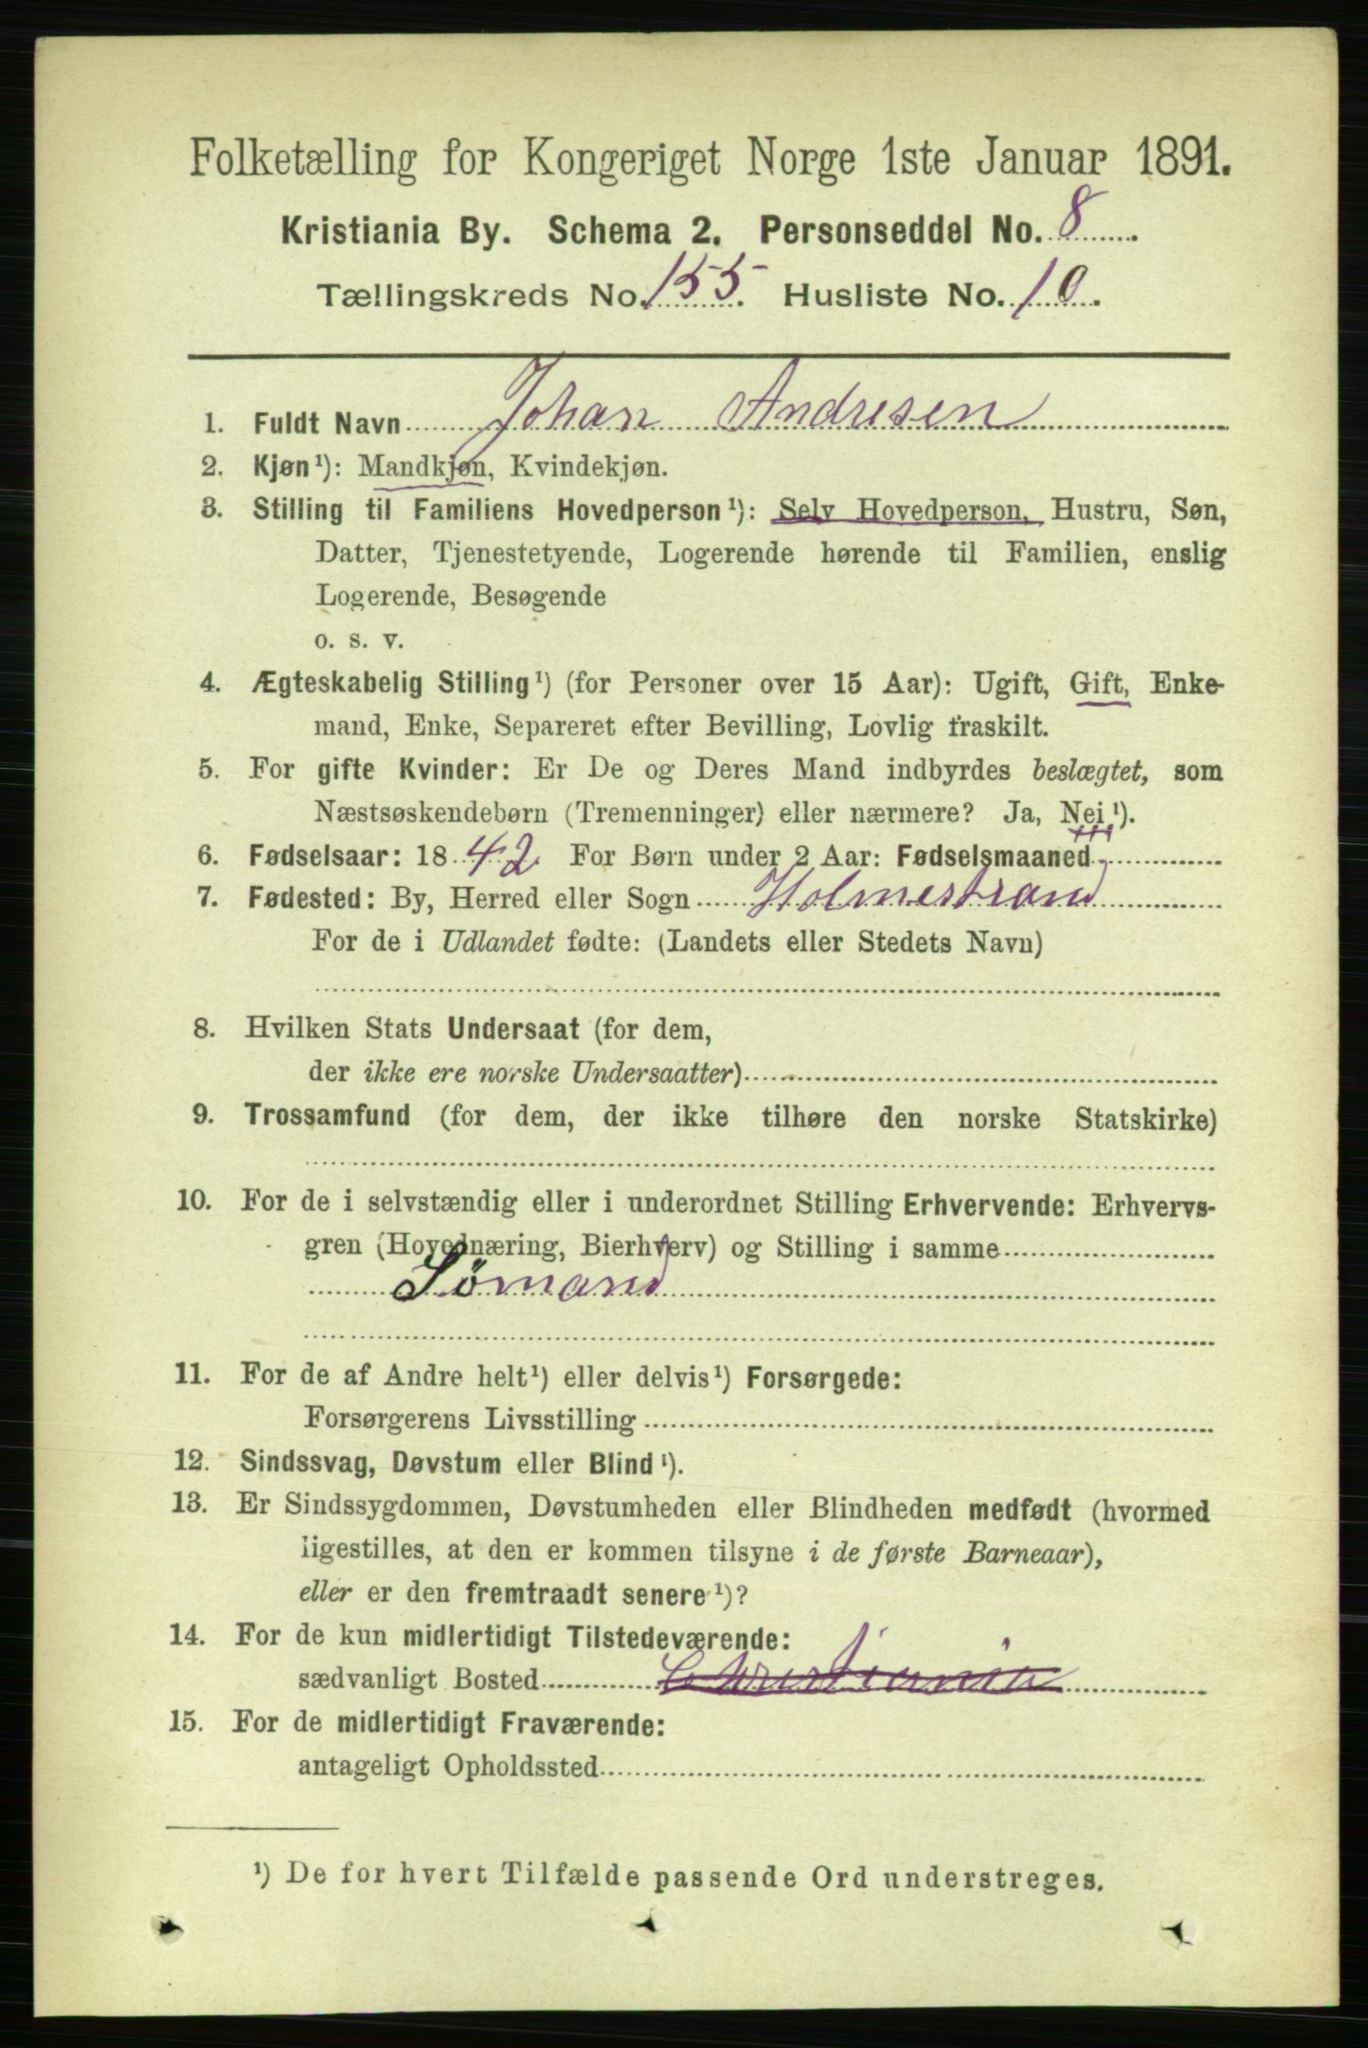 Folketælling for Kongeriget Norge 1ste Januar 1891.
Kristiania By. Schema 2. Personseddel No. 8
Tællingskreds No. 155. Husliste No. 10.
1. Fuldt Navn Johan Andresen
2. Kjøn¹): Mandkjøn, Kvindekjøn.
3. Stilling til Familiens Hovedperson¹): Selv Hovedperson, Hustru, Søn,
Datter, Tjenestetyende, Logerende hørende til Familien, enslig
Logerende, Besøgende
o. s. v.
4. Ægteskabelig Stilling¹) (for Personer over 15 Aar): Ugift, Gift, Enke-
mand, Enke, Separeret efter Bevilling, Lovlig fraskilt.
5. For gifte Kvinder: Er De og Deres Mand indbyrdes beslægtet, som
Næstsøskendebørn (Tremenninger) eller nærmere? Ja, Nei¹).
6. Fødselsaar: 1842. For Børn under 2 Aar: Fødselsmaaned
7. Fødested: By, Herred eller Sogn Holmestrand
For de i Udlandet fødte: (Landets eller Stedets Navn)
8. Hvilken Stats Undersaat (for dem,
der ikke ere norske Undersaatter)
9. Trossamfund (for dem, der ikke tilhøre den norske Statskirke)
10. For de i selvstændig eller i underordnet Stilling Erhvervende: Erhvervs-
gren (Hovednæring, Bierhverv) og Stilling i samme
Sömand
11. For de af Andre helt¹) eller delvis¹) Forsørgede:
Forsørgerens Livsstilling
12. Sindssvag, Døvstum eller Blind¹).
13. Er Sindssygdommen, Døvstumheden eller Blindheden medfødt (hvormed
ligestilles, at den er kommen tilsyne i de første Barneaar),
eller er den fremtraadt senere¹)?
14. For de kun midlertidigt Tilstedeværende:
sædvanligt Bosted Christiania
15. For de midlertidigt Fraværende:
antageligt Opholdssted
¹) De for hvert Tilfælde passende Ord understreges.